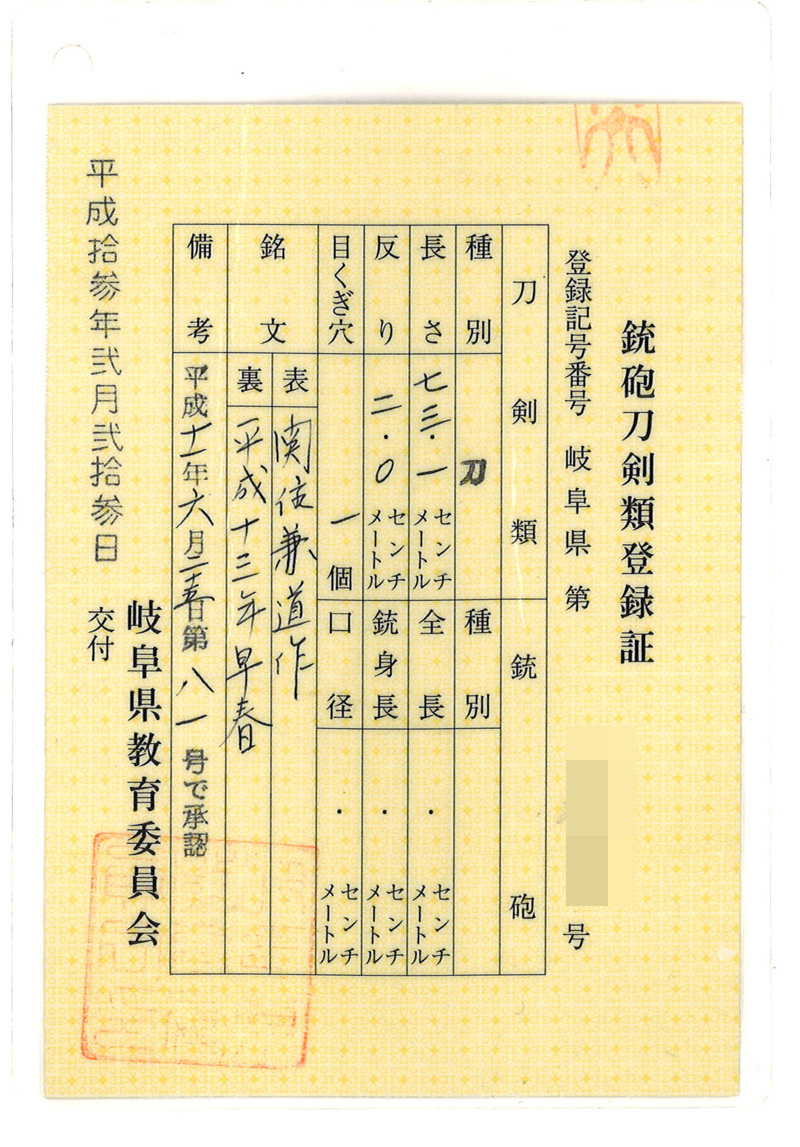 銃砲刀剣類登録証
登録記号番号 岐阜県 第 号
刀剣類
銃砲
種別 刀
長さ 七三・一 センチメートル
反り 二・〇 センチメートル
目くぎ穴 一個
種別
全長 ・ センチメートル
銃身長 ・ センチメートル
口径 ・ センチメートル
銘文
表 関住兼道作
裏 平成十三年早春
備考 平成十一年六月二十五日第八一号で承認
岐阜県教育委員会
平成拾参年弐月弐拾参日 交付